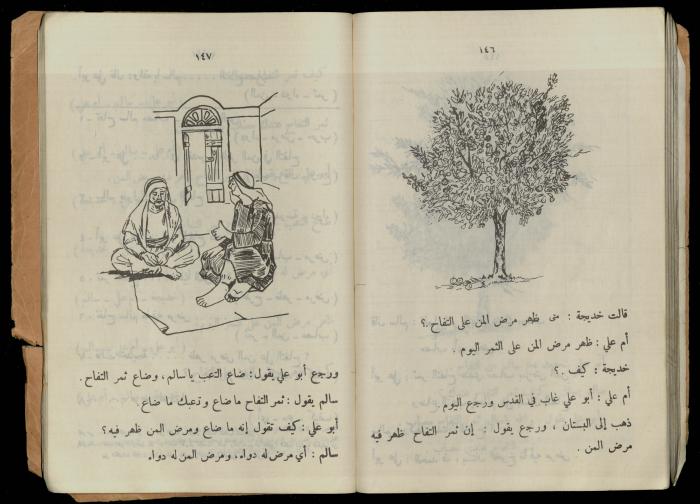 ١٤٦
قالت خديجة : متى ظهر مرض المن على التفاح .؟
أم علي : ظهر مرض المن على الثمر اليوم .
خديجة : كيف .؟
أم علي : أبو علي غاب في القدس ورجع اليوم .
ذهب إلى البستان ، ورجع يقول : إن ثمر التفاح ظهر فيه
مرض المن .
١٤٧
ورجع أبو علي يقول : ضاع التعب يا سالم ، وضاع ثمر التفاح .
سالم يقول : ثمر التفاح ما ضاع وتعبك ما ضاع .
أبو علي : كيف تقول إنه ما ضاع ومرض المن ظهر فيه ؟
سالم : أي مرض له دواء ، ومرض المن له دواء .